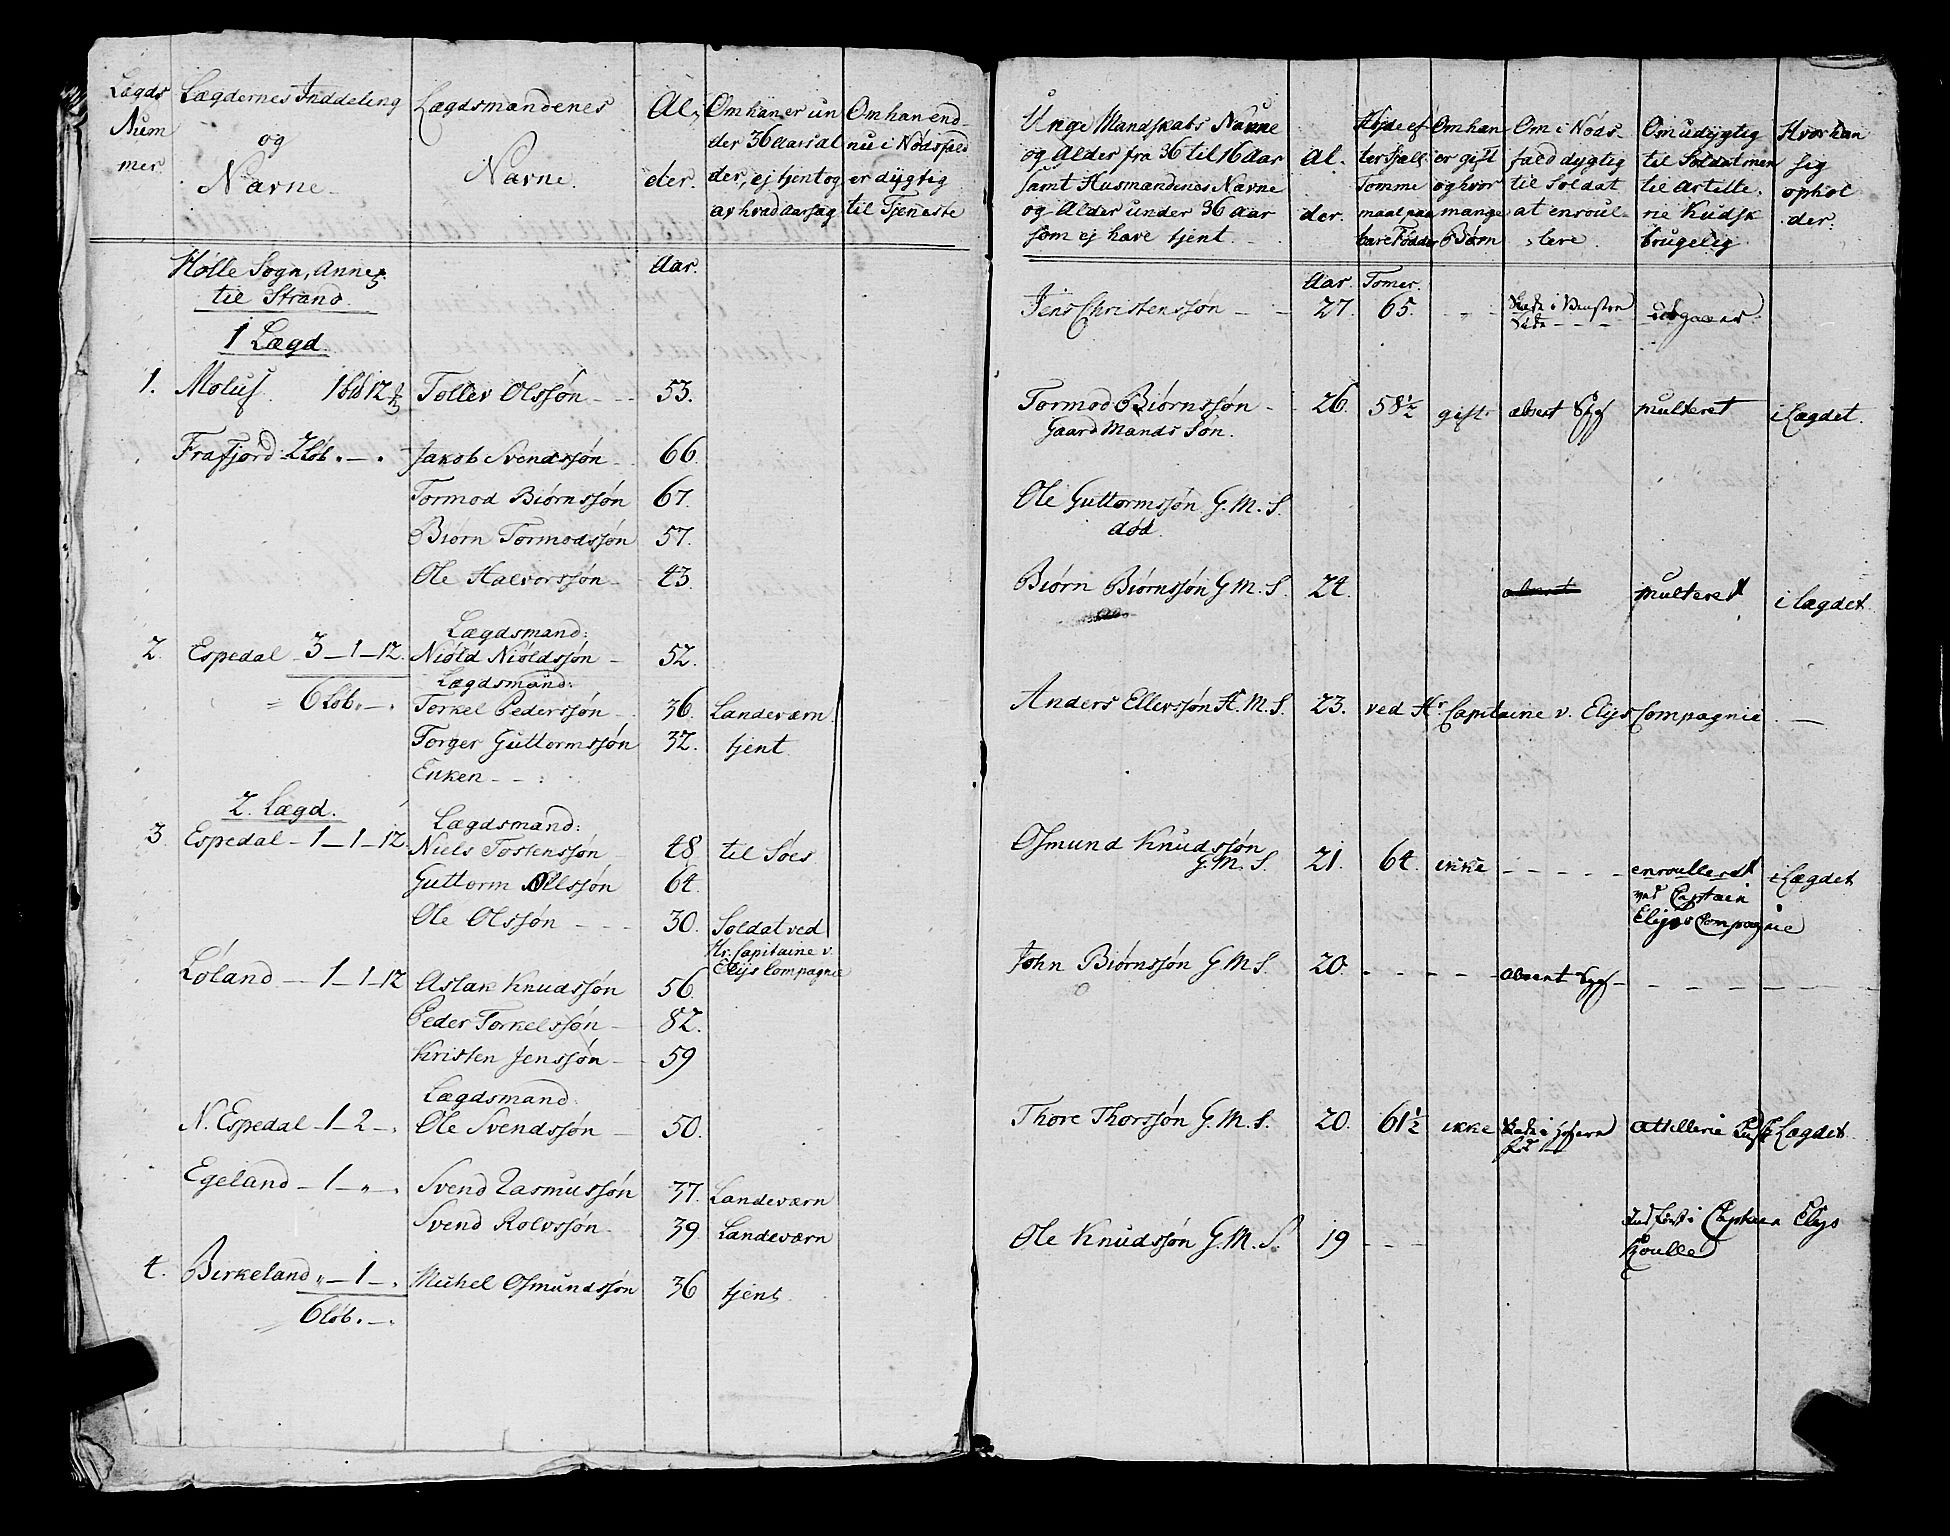 Lægds
Num
mer.
Lægdernes Inddeling
og
Navne.
Lægdsmandenes
Navne.
Al,
der.
Om han er un
der 36 Aars al
der, ej tjent og
av hvad aarsag
Om han end-
nu i Nødsfald
er dygtig
til Tjeneste
Hølle Sogn, Annex
til Strand.
Aar.
1 Lægd
1. Moluf. 1 12 Tollev Olssøn 53.
Frafjord 2 Løb. „ — „ Jakob Svendssøn 66
Tormod Biørnssøn 67.
Biørn Tormodssøn 57.
Ole Halvorssøn 43.
Lægdsmand:
2. Espedal 3 — 1 — 12. Niöld Niöldssøn 52.
Lægdsmand:
6 Løb. „ — „ Torkel Pederssøn 36. Landeværn.
Torger Guttormssøn 32. tjent.
Enken
2. Lægd.
Lægdsmand:
3 Espedal — 1 — 1 — 12 Niels Tostenssøn 48 til Søes
Guttorm Olssøn 64.
Ole Olssøn 30. Soldat ved
Hr. Capitaine v.
Elijs Compagnie
Løland — 1 — 1 — 12 Aslak Knudssøn 56.
Peder Torkelssøn 82.
Kristen Jenssøn 59
Lægdsmand:
N. Espedal — 1 — 2 — „ Ole Svendssøn 50.
Egeland — 1 — „ — „ Svend Rasmussøn 37. Landeværn
Svend Rolvssøn 39 Landeværn
4. Birkeland „ — 1 — „ Michel Osmundssøn 36 tjent
6 Løb. „ — „
Unge Mandskabs Navne
og Alder fra 36 til 16 Aar
samt Husmandenes Navne
og Alder under 36 Aar
som ej have tjent.
Al.
der.
Højde ef
ter Sjæll.
Tomme
maal paa
bare Fødder
Om han
er gift
og hvor
mange
Børn
Om i Nøds-
fald dygtig
til Soldat
at enroul-
lere.
Om udygtig
til Soldat men
til Artille.
rie Kudsk
brugelig
Hvor han
sig
ophol
der.
Aar. Tomer.
Jens Christenssøn 27. 65.
Tormod Biørnssøn 26. 58½ gift absent multeret i Lægdet.
Gaard Mands Søn.
Ole Guttormssøn G. M. S.
død.
Biørn Biørnssøn G M. S 24. absent multeret i lægdet
Anders Ellevssøn H. M. S. 23. ved Hr Capitaine v. Elijs Compagnie
Osmund Knudssøn
G. M. S. 21. 64. ikke enroulleret i Lægdet
ved Captain
Elijs Compagnie
John Biørnssøn G M S. 20. absent
Thore Thorssøn G. M. S. 20. 61½ ikke Attillerie Kusk Lægdet
Captain Elijs
Roulle
Ole Knudssøn G. M. S. 19